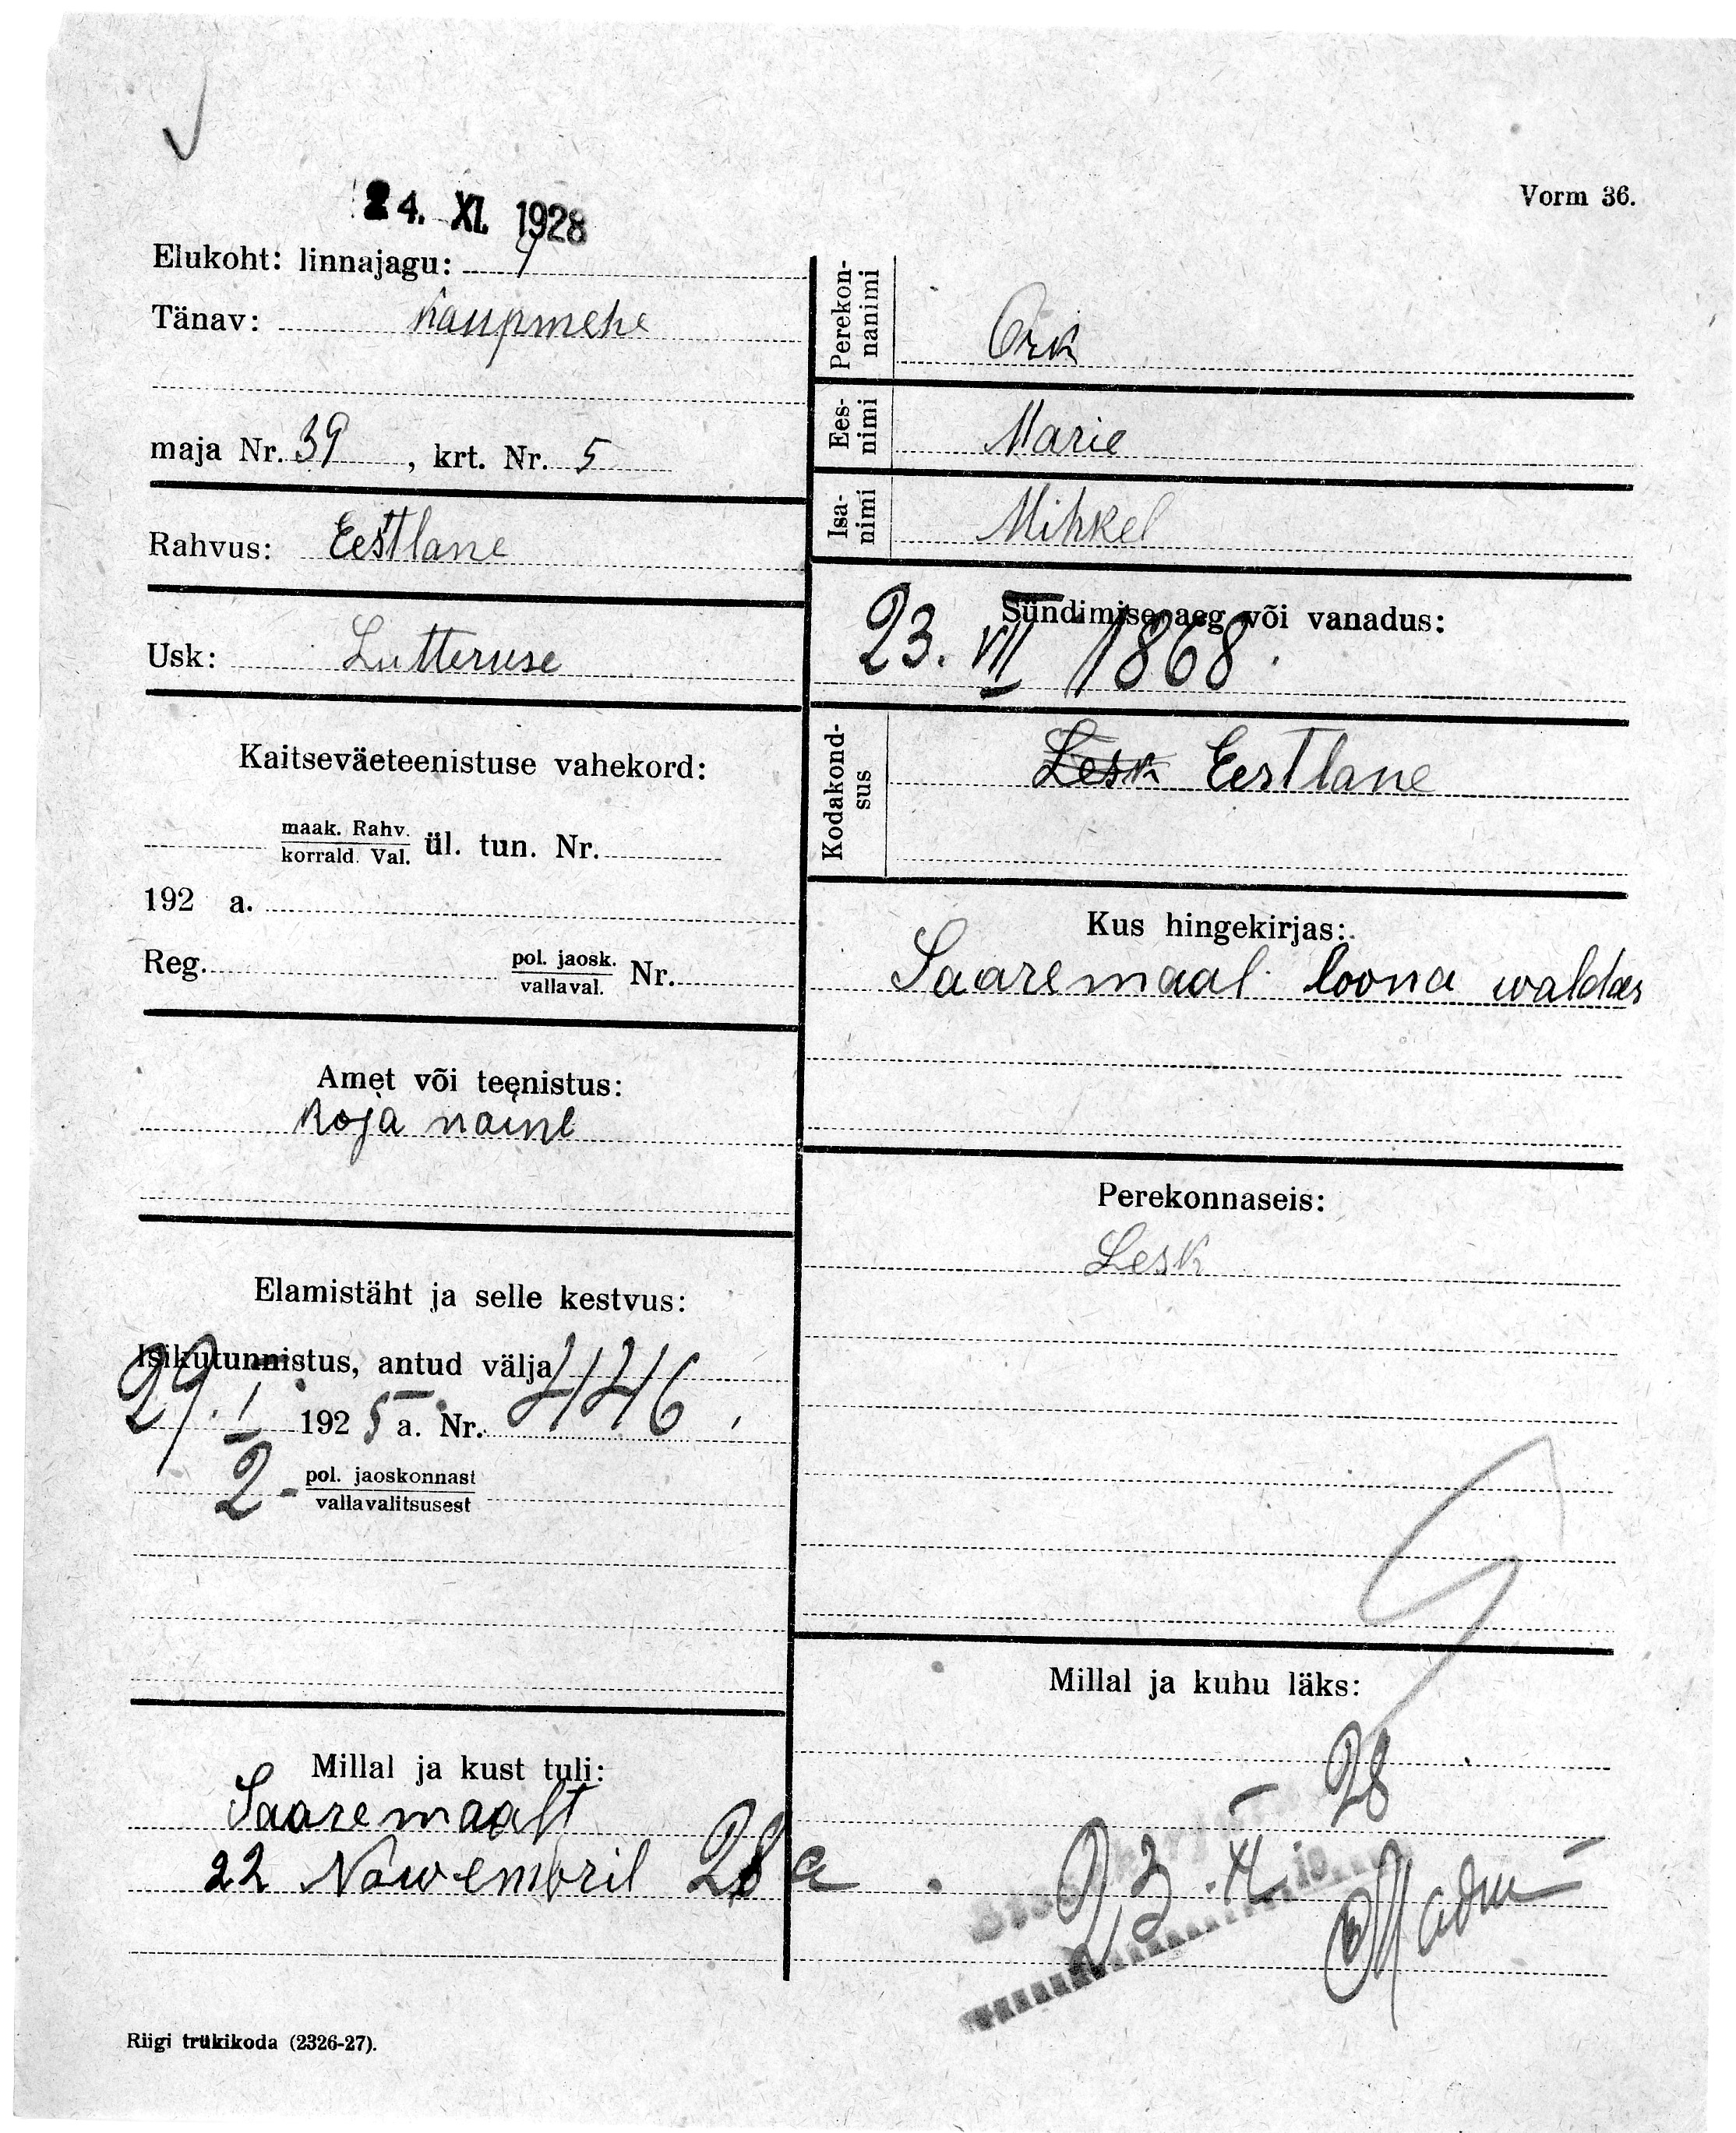 24. XI. 1928
Vorm 36.
Elukoht: linnajagu: 4
Tänav: Kaupmehe
maja Nr. 39, krt. Nr. 5
Rahvus: Eestlane
Usk: Lutteruse
Kaitseväeteenistuse vahekord:
maak. Rahv.
korrald. Val. ül. tun. Nr.
192 a.
Reg. pol. jaosk.
vallaval. Nr.
Amet või teenistus:
Koja naine
Elamistäht ja selle kestvus:
Isikutunnistus, antud välja
29. I 1925 a. Nr. 446.
2- pol. jaoskonnast
vallavalitsusest
Millal ja kust tuli:
Saaremaalt
22 Nowembril 28 a
Perekon-
nanimi
Ork
Ees-
nimi
Marie
Isa-
nimi
Mihkel
Sündimise aeg või vanadus:
23. VII 1868.
Kodakond-
sus
Lesk Eestlane
Kus hingekirjas:
Saaremaal loona waldas
Perekonnaseis:
Lesk
Millal ja kuhu läks:
28
Riigi trükikoda (2326-27).